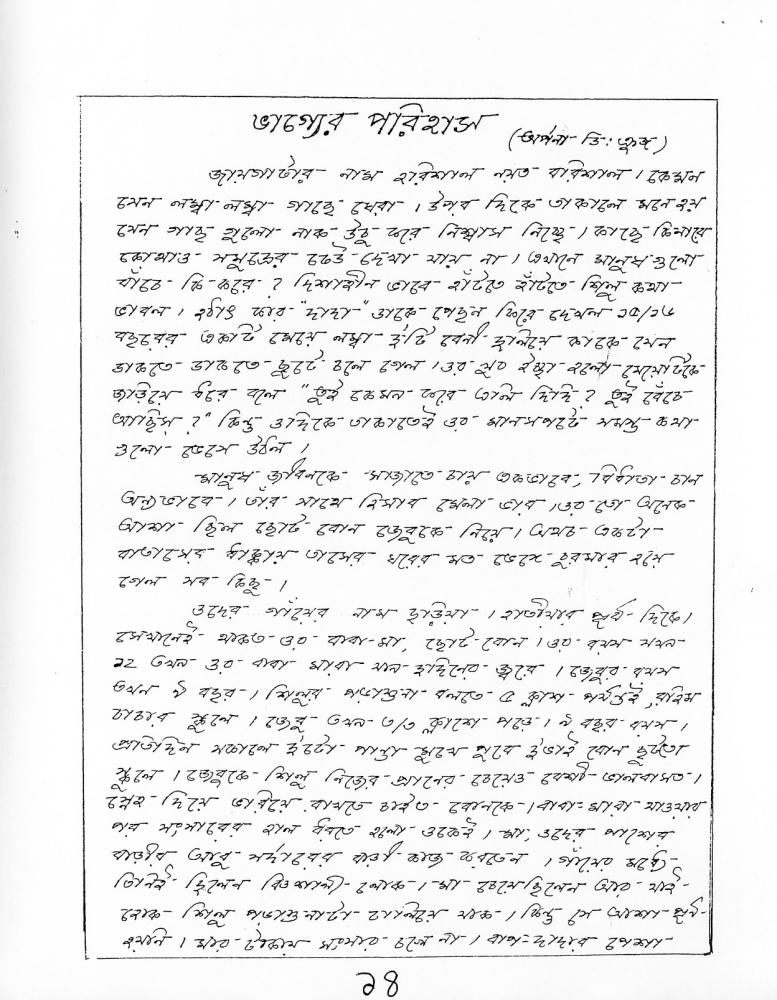 ভাগ্যের পরিহাস
(অর্পনা ডি: ক্রুজ)
জায়গাটার নাম হরিশাল নয়ত বারিশাল । কেমন
যেন লম্বা লম্বা গাছে ঘেরা । উপর দিকে তাকালে মনে হয়
যেন গাছ গুলো নাক উঁচু করে নিশ্বাস নিচ্ছে । কাছে কিনারে
কোথাও সমুদ্রের ঢেউ দেখা যায় না । এখানে মানুষ গুলো
বাঁচে কি করে ? দিশাহীন ভাবে হাঁটতে হাঁটতে শিলু কথা
ভাবল । হঠাৎ কার "দাদা" ডাকে পেছন ফিরে দেখল ১৫/১৬
বছরের একটি মেয়ে লম্বা দু'টি বেনী ঝুলিয়ে কাকে যেন
ডাকতে ডাকতে ছুটে চলে গেল । ওর খুব ইচ্ছা হলো মেয়েটিকে
জড়িয়ে ধরে বলে "তুই কেমন করে এলি দিদি ? তুই বেঁচে
আছিস ?" কিন্তু ওদিকে তাকাতেই ওর মানসপটে সমস্ত কথা
গুলো ভেসে উঠল ।
মানুষ জীবনকে সাজাতে চায় একভাবে, বিধাতা চান
অন্যভাবে । তাঁর সাথে হিসাব মেলা ভার । ওর তো অনেক
আশা ছিল ছোট বোন জেবুকে নিয়ে । অথচ একটা
বাতাসের ধাক্কায় তাসের ঘরের মত ভেঙ্গে চুরমার হয়ে
গেল সব কিছু ।
ওদের গাঁয়ের নাম ছাড়িয়া । হাতীয়ার পূর্ব দিকে ।
সেখানেই থাকত ওর বাবা-মা, ছোট বোন । ওর বয়স যখন
১২ তখন ওর বাবা মারা যান দুদিনের জ্বরে । জেবুর বয়স
তখন ৯ বছর । শিলুর পড়াশুনা বলতে ৫ ক্লাশ পর্যন্তই রহিম
চাচার স্কুলে । জেবু তখন ৩/৩ ক্লাশে পড়ে । ৯ বছর বয়স ।
প্রতিদিন সকালে দু'টো পান্তা মুখে পুরে দু'ভাই বোন ছুটতো
স্কুলে । জেবুকে শিলু নিজের প্রানের চেয়েও বেশী ভালবাসত ।
স্নেহ দিয়ে ভরিয়ে রাখতে চাইত বোনকে । বাবা মারা যাওয়ার
পর সংসারের হাল ধরতে হলো ওকেই । মা, ওদের পাশের
বাড়ীর আবু সর্দারের বাড়ী কাজ করতেন । গাঁয়ের মধ্যে
তিনিই ছিলেন বিত্তশালী লোক । মা চেয়েছিলেন আর যাই
হোক শিলু পড়াশুনাটা চালিয়ে যাক । কিন্তু সে আশা পূর্ন
হয়নি । মার টাকায় সংসার চলে না । বাপ-দাদার পেশা
১৪